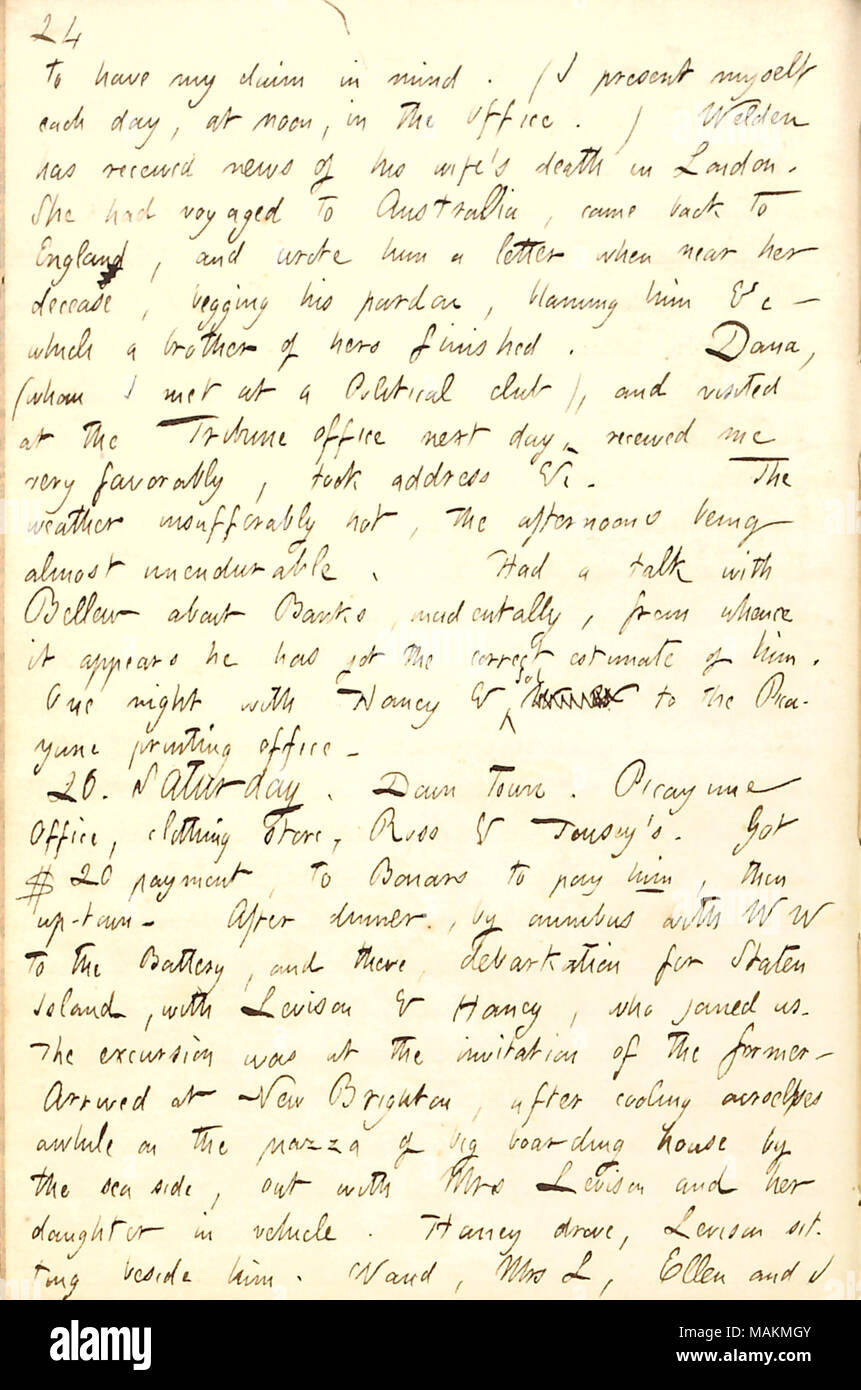 24
to have my claim in mind. (I present myself
each day, at noon, in the office.) Welden
has received news of his wife's death in London.
She had voyaged to Australia, came back to
England, and wrote him a letter when near her
decease, begging his pardon, blaming him &c —
which a brother of hers finished. Dana,
(whom I met at a Political club), and visited
at the Tribune office next day, received me
very favorably, took address &c. The
weather insufferably hot, the afternoons being
almost unendurable. Had a talk with
Bellew about Banks, incidentally, from whence
it appears he has got the correct estimate of him.
One night with Haney & Sol to the Pica-
yune printing office.
26. Saturday. Down town. Picayune
Office, clothing store, Ross & Tousey's. Got
$20 payment, to Bonars to pay him, then
up-town. After dinner, by omnibus with W W
to the Battery, and there, debarkation for Staten
Island, with Levison & Haney, who joined us.
The excursion was at the invitation of the former.
Arrived at New Brighton, after cooling ourselves
awhile on the piazza of big boarding house by
the sea side, out with Mrs Levison and her
daughter in vehicle. Haney drove, Levison sit-
ting beside him. Waud, Mrs L, Ellen and I
alamy
Image ID: MAKMGY
www.alamy.com